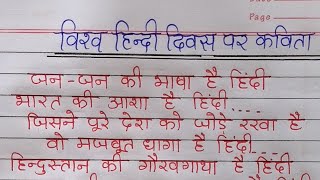 Page
विश्व हिन्दी दिवस पर कविता
जन-जन की भाषा है हिंदी
भारत की आशा है हिंदी....
जिसने पूरे देश को जोड़े रखा है
वो मजबूत धागा है हिंदी...
हिन्दुस्तान की गौरवगाथा है हिंदी